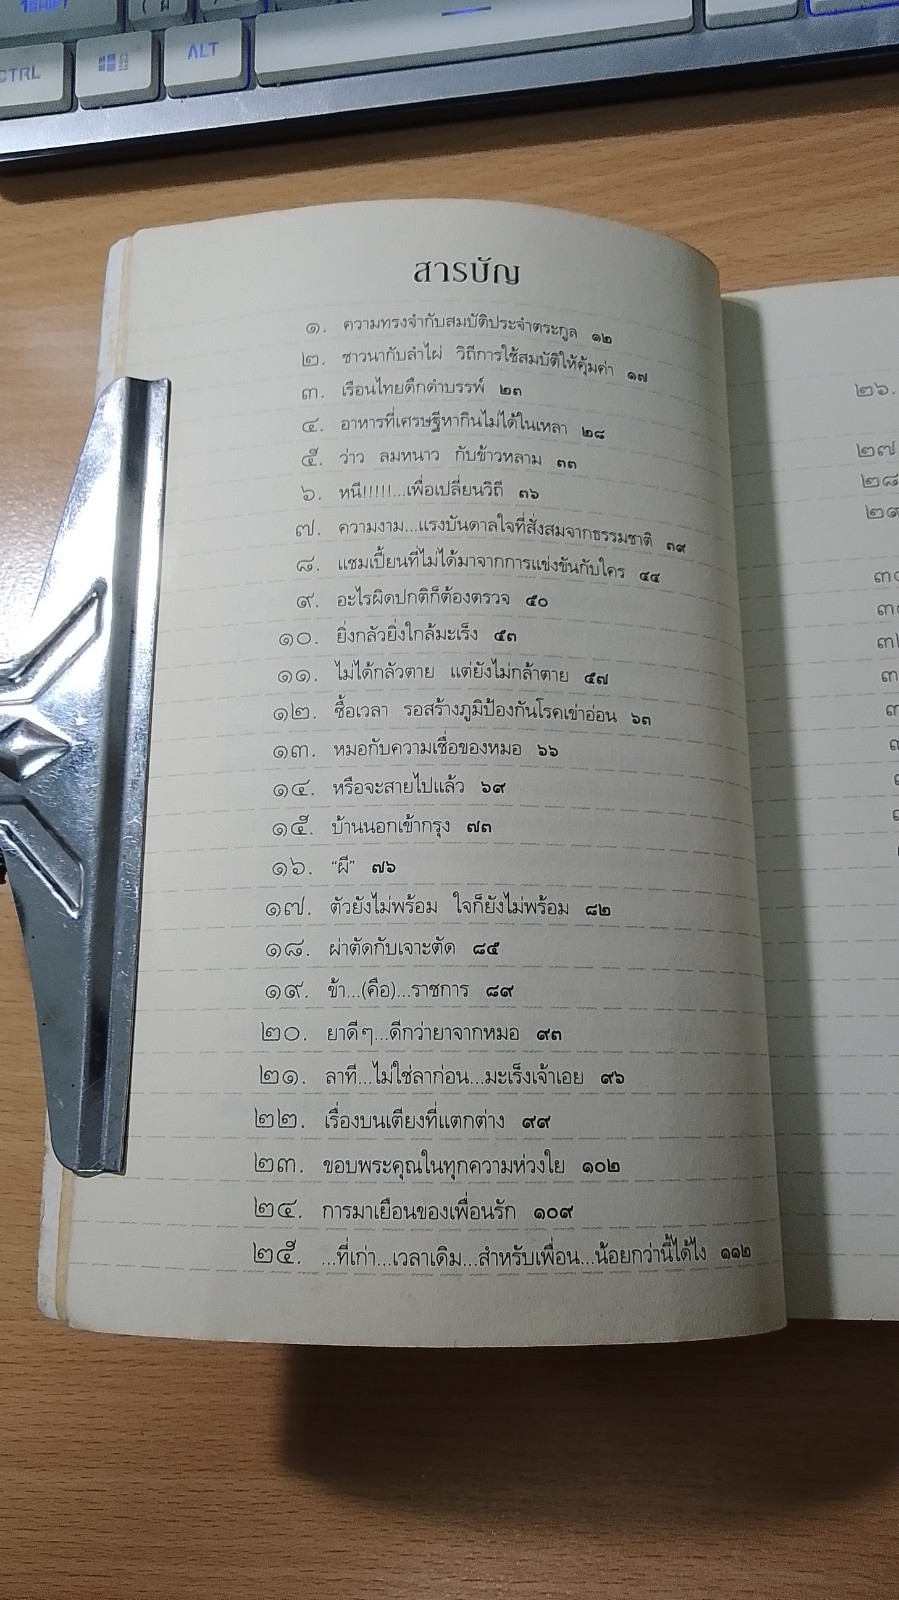 1SHIFT
CTRL
ALT
สารบัญ
๑. ความทรงจำกับสมบัติประจำตระกูล ๑๒
๒. ชาวนากับลำไผ่ วิถีการใช้สมบัติให้คุ้มค่า ๑๗
๓. เรือนไทยดึกดำบรรพ์ ๒๓
๔. อาหารที่เศรษฐีหากินไม่ได้ในเหลา ๒๘
๕. ว่าว ลมหนาว กับข้าวหลาม ๓๓
๖. หนี!!!!!...เพื่อเปลี่ยนวิถี ๓๖
๗. ความงาม...แรงบันดาลใจที่สั่งสมจากธรรมชาติ ๓๙
๘. แชมเปี้ยนที่ไม่ได้มาจากการแข่งขันกับใคร ๔๔
๙. อะไรผิดปกติก็ต้องตรวจ ๕๐
๑๐. ยิ่งกลัวยิ่งใกล้มะเร็ง ๕๓
๑๑. ไม่ได้กลัวตาย แต่ยังไม่กล้าตาย ๕๗
๑๒. ซื้อเวลา รอสร้างภูมิป้องกันโรคเข่าอ่อน ๖๓
๑๓. หมอกับความเชื่อของหมอ ๖๖
๑๔. หรือจะสายไปแล้ว ๖๙
๑๕. บ้านนอกเข้ากรุง ๗๓
๑๖. “ผี” ๗๖
๑๗. ตัวยังไม่พร้อม ใจก็ยังไม่พร้อม ๘๒
๑๘. ผ่าตัดกับเจาะตัด ๘๕
๑๙. ข้า...(คือ)...ราชการ ๘๙
๒๐. ยาดีๆ...ดีกว่ายาจากหมอ ๙๓
๒๑. ลาที...ไม่ใช่ลาก่อน...มะเร็งเจ้าเอย ๙๖
๒๒. เรื่องบนเตียงที่แตกต่าง ๙๙
๒๓. ขอบพระคุณในทุกความห่วงใย ๑๐๒
๒๔. การมาเยือนของเพื่อนรัก ๑๐๙
๒๕. ...ที่เก่า...เวลาเดิม...สำหรับเพื่อน...น้อยกว่านี้ได้ไง ๑๑๒
๒๖.
๒๗
๒๘
๒๙